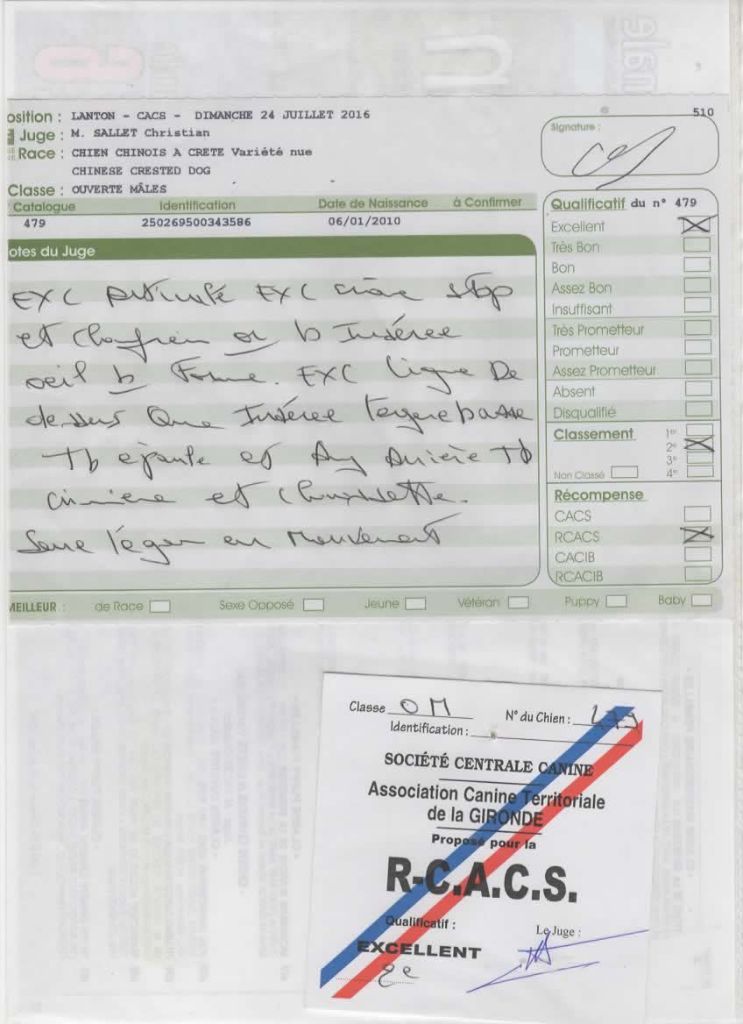 510
osition : LANTON - CACS - DIMANCHE 24 JUILLET 2016
Juge : M. SALLET Christian
Race : CHIEN CHINOIS A CRETE Variété nue
CHINESE CRESTED DOG
Classe : OUVERTE MÂLES
Signature :
Catalogue Identification Date de Naissance à Confirmer
479 250269500343586 06/01/2010
Qualificatif du n° 479
Excellent
Très Bon
Bon
Assez Bon
Insuffisant
Très Prometteur
Prometteur
Assez Prometteur
Absent
Disqualifié
Classement 1er
2e
3e
Non Classé 4e
Récompense
CACS
RCACS
CACIB
RCACIB
otes du Juge
EXC EXC crâne stop
et chanfrein or b Insérée
oeil b Forme. EXC ligne De
dessus Que Insérée légère basse
Tb épaule et Arrière Tb
crinière et chaussette.
Serré léger en Mouvement
MEILLEUR : de Race Sexe Opposé Jeune Vétéran Puppy Baby
Classe OM N° du Chien : 479
Identification :
SOCIÉTÉ CENTRALE CANINE
Association Canine Territoriale
de la GIRONDE
Proposé pour la
R-C.A.C.S.
Qualificatif :
Le Juge :
EXCELLENT
2e